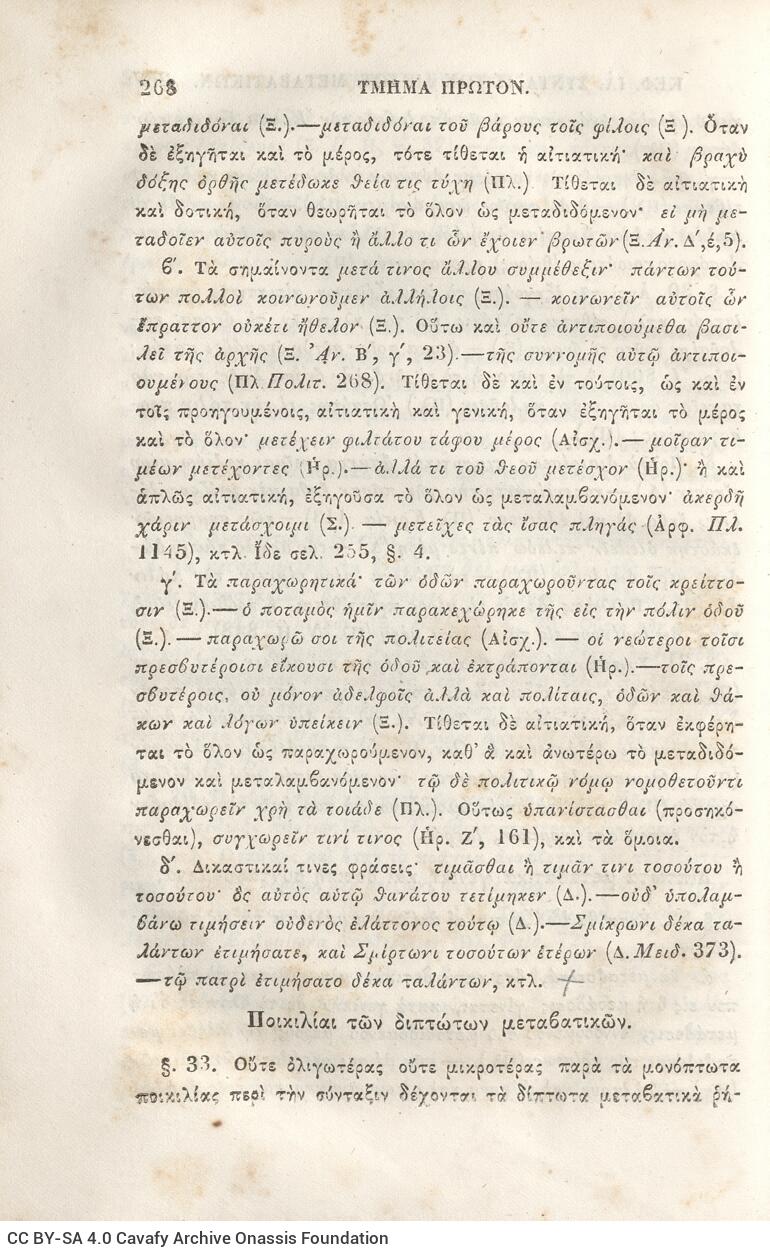 268 ΤΜΗΜΑ ΠΡΩΤΟΝ.
μεταδιδόναι (Ξ.).—μεταδιδόναι τοῦ βάρους τοῖς φίλοις (Ξ.). Ὅταν
δὲ ἐξηγῆται καὶ τὸ μέρος, τότε τίθεται ἡ αἰτιατική· καὶ βραχὺ
δόξης ὀρθῆς μετέδωκε θεία τις τύχη (Πλ.). Τίθεται δὲ αἰτιατικὴ
καὶ δοτικὴ, ὅταν θεωρῆται τὸ ὅλον ὡς μεταδιδόμενον· εἰ μὴ με-
ταδοῖεν αὐτοῖς πυροὺς ἢ ἄλλο τι ὧν ἔχοιεν βρωτῶν (Ξ. Ἀν. Δ΄,έ,5).
ϐ΄. Τὰ σημαίνοντα μετά τινος ἄλλου συμμέθεξιν· πάντων τού-
των πολλοὶ κοινωνοῦμεν ἀλλήλοις (Ξ.). — κοινωνεῖν αὐτοῖς ὧν
ἔπραττον οὐκέτι ἤθελον (Ξ.). Οὕτω καὶ οὔτε ἀντιποιούμεθα βασι-
λεῖ τῆς ἀρχῆς (Ξ. Ἀν. Β΄, γ΄, 23).—τῆς συννομῆς αὐτῷ ἀντιποι-
ουμένους (Πλ. Πολιτ. 268). Τίθεται δὲ καὶ ἐν τούτοις, ὡς καὶ ἐν
τοῖς προηγουμένοις, αἰτιατικὴ καὶ γενικὴ, ὅταν ἐξηγῆται τὸ μέρος
καὶ τὸ ὅλον· μετέχειν φιλτάτου τάφου μέρος (Αἰσχ.).— μοῖραν τι-
μέων μετέχοντες (Ἡρ.).—ἀλλά τι τοῦ θεοῦ μετέσχον (Ἡρ.)· ἢ καὶ
ἁπλῶς αἰτιατικὴ, ἐξηγοῦσα τὸ ὅλον ὡς μεταλαμϐανόμενον· ἀκερδῆ
χάριν μετάσχοιμι (Σ.). — μετεῖχες τὰς ἴσας πληγάς (Ἀρφ. Πλ.
1145), κτλ. Ἴδε σελ. 255, §. 4.
γ΄. Τὰ παραχωρητικά· τῶν ὁδῶν παραχωροῦντας τοῖς κρείττο-
σιν (Ξ.).—ὁ ποταμὸς ἡμῖν παρακεχώρηκε τῆς εἰς τὴν πόλιν ὁδοῦ
(Ξ.).— παραχωρῶ σοι τῆς πολιτείας (Αἰσχ.). — οἱ νεώτεροι τοῖσι
πρεσϐυτέροισι εἴκουσι τῆς ὁδοῦ καὶ ἐκτράπονται (Ἡρ.).—τοῖς πρε-
σϐυτέροις, οὐ μόνον ἀδελφοῖς ἀλλὰ καὶ πολίταις, ὁδῶν καὶ θά-
κων καὶ λόγων ὑπείκειν (Ξ.). Τίθεται δὲ αἰτιατικὴ, ὅταν ἐκφέρη-
ται τὸ ὅλον ὡς παραχωρούμενον, καθ᾽ ἃ καὶ ἀνωτέρω τὸ μεταδιδό-
μενον καὶ μεταλαμϐανόμενον· τῷ δὲ πολιτικῷ νόμῳ νομοθετοῦντι
παραχωρεῖν χρὴ τὰ τοιάδε (Πλ.). Οὕτως ὑπανίστασθαι (προσηκό-
νεσθαι), συγχωρεῖν τινί τινος (Ἡρ. Ζ΄, 161), καὶ τὰ ὅμοια.
δ΄. Δικαστικαί τινες φράσεις· τιμᾶσθαι ἢ τιμᾶν τινι τοσούτου ἢ
τοσούτου· ὃς αὐτὸς αὑτῷ θανάτου τετίμηκεν (Δ.).—οὐδ᾽ ὑπολαμ-
ϐάνω τιμήσειν οὐδενὸς ἐλάττονος τούτῳ (Δ.).—Σμίκρωνι δέκα τα-
λάντων ἐτιμήσατε, καὶ Σμίρτωνι τοσούτων ἑτέρων (Δ. Μειδ. 373).
—τῷ πατρὶ ἐτιμήσατο δέκα ταλάντων, κτλ.
Ποικιλίαι τῶν διπτώτων μεταϐατικῶν.
§. 33. Οὔτε ὀλιγωτέρας οὔτε μικροτέρας παρὰ τὰ μονόπτωτα
ποικιλίας περὶ τὴν σύνταξιν δέχονται τὰ δίπτωτα μεταϐατικὰ ῥή-
CC BY-SA 4.0 Cavafy Archive Onassis Foundation